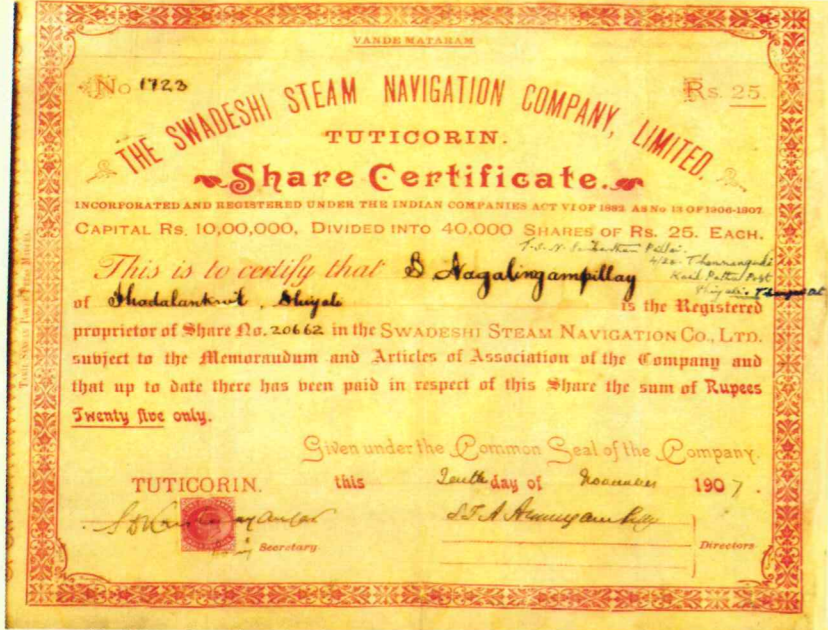 VANDE MATARAM
No 1723
Rs. 25.
THE SWADESHI STEAM NAVIGATION COMPANY, LIMITED.
TUTICORIN.
Share Certificate.
INCORPORATED AND REGISTERED UNDER THE INDIAN COMPANIES ACT VI OF 1882 AS No 13 OF 1906-1907
CAPITAL RS. 10,00,000, DIVIDED INTO 40,000 SHARES OF RS. 25. EACH.
This is to certify that S Nagalingampillay
of Shiyali is the Registered
proprietor of Share No. 20662 in the SWADESHI STEAM NAVIGATION CO., LTD.
subject to the Memorandum and Articles of Association of the Company and
that up to date there has been paid in respect of this Share the sum of Rupees
Twenty five only.
Given under the Common Seal of the Company.
TUTICORIN. this Tenth day of November 1907.
Secretary
Directors